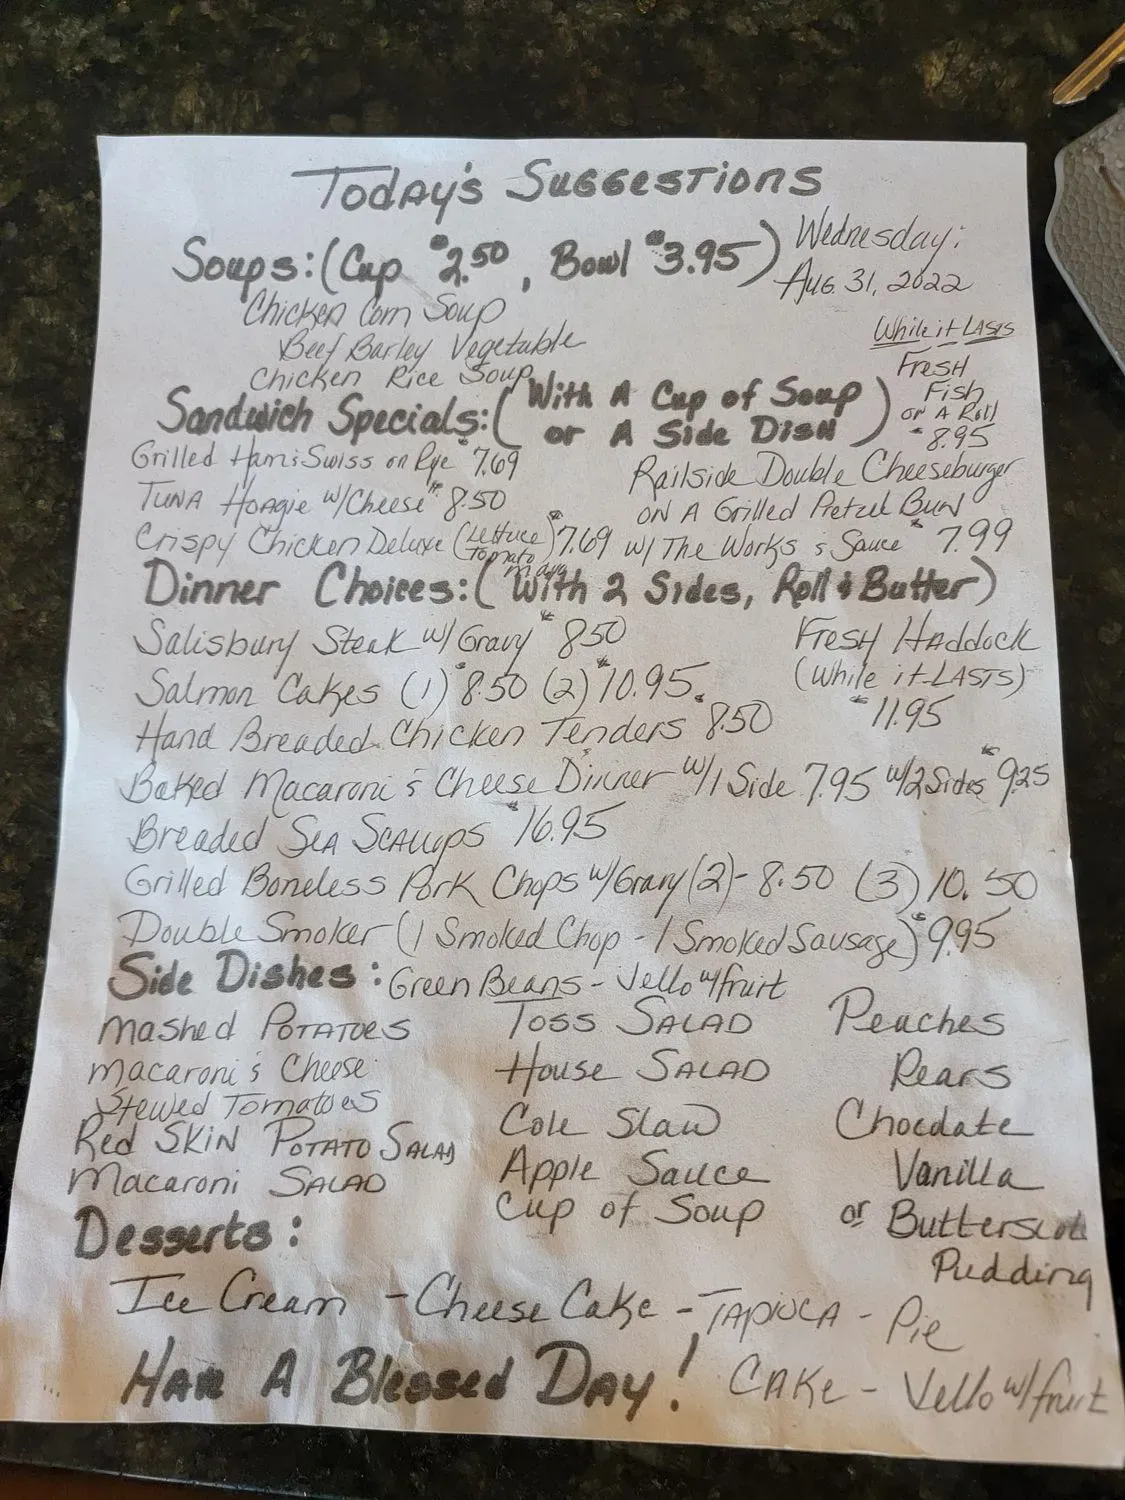 Today's Suggestions
Soups: (Cup $2.50, Bowl $3.95)
Wednesday:
Aug. 31, 2022
Chicken Corn Soup
Beef Barley Vegetable
Chicken Rice Soup
While it Lasts
Fresh
Fish
on A Roll
$8.95
Sandwich Specials: (With A Cup of Soup
or A Side Dish)
Grilled Ham & Swiss on Rye $7.69
Tuna Hoagie w/Cheese $8.50
Crispy Chicken Deluxe (Lettuce
Tomato
mayo) $7.69
Railside Double Cheeseburger
on A Grilled Pretzel Bun
w/ The Works & Sauce $7.99
Dinner Choices: (With 2 Sides, Roll & Butter)
Salisbury Steak w/ Gravy $8.50
Salmon Cakes (1) $8.50 (2) $10.95
Hand Breaded Chicken Tenders $8.50
Fresh Haddock
(While it LASTS)
$11.95
Baked Macaroni & Cheese Dinner w/1 Side 7.95 w/2 Sides $9.25
Breaded Sea Scallops $16.95
Grilled Boneless Pork Chops w/Gravy (2)- 8.50 (3) 10.50
Double Smoker (1 Smoked Chop - 1 Smoked Sausage) $9.95
Side Dishes: Green Beans - Jello w/fruit
Mashed Potatoes
Macaroni & Cheese
Stewed Tomatoes
Red Skin Potato Salad
Macaroni Salad
Toss Salad
House Salad
Cole Slaw
Apple Sauce
Cup of Soup
Peaches
Pears
Chocolate
Vanilla
or Butterscotch
Pudding
Desserts:
Ice Cream - Cheese Cake - Tapioca - Pie
Cake - Jello w/fruit
Have A Blessed Day!